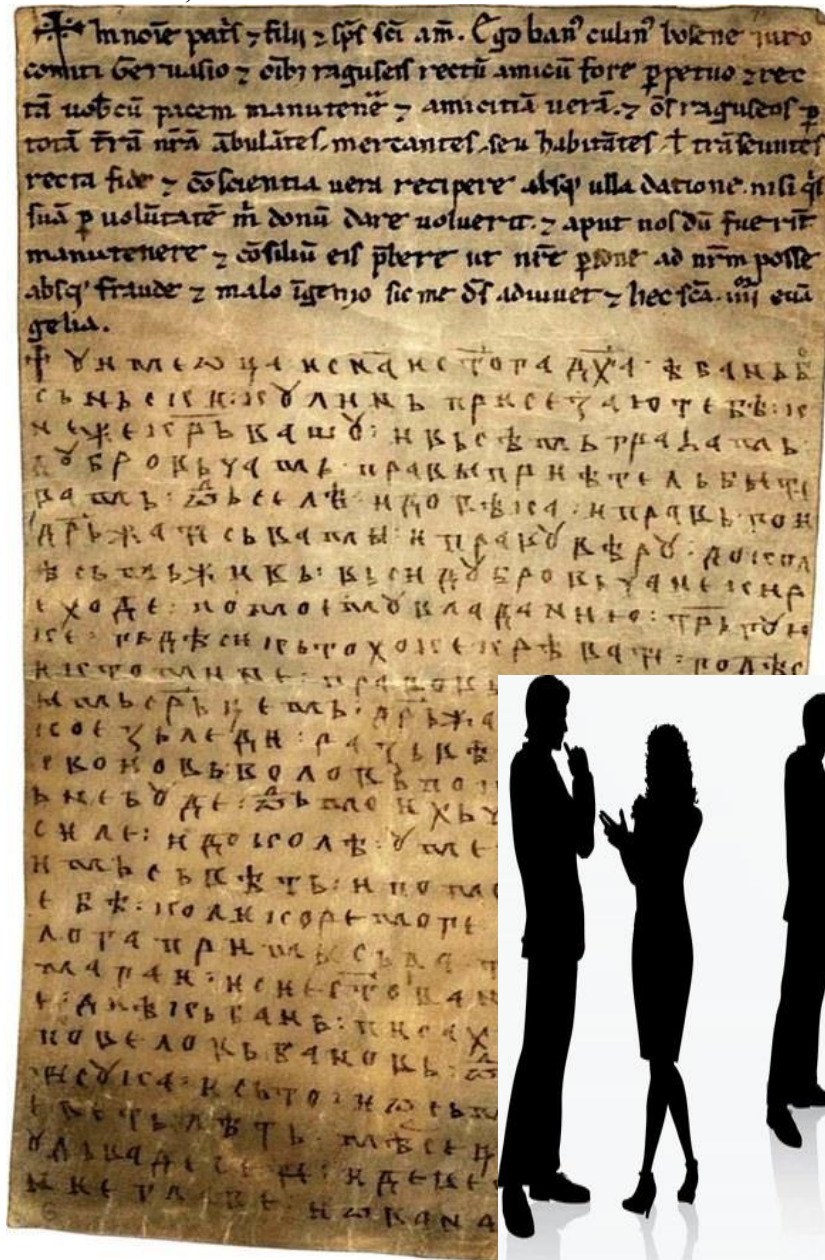 ☩ In noīe pat̄s ⁊ filij ⁊ sp̄s sc̄i am̄. Ego banꝰ culinꝰ bosene iuro
comiti Geruasio ⁊ oīb; raguseis rectū amicū fore ꝑpetuo ⁊ rec
tā uob̄cū pacem manutenē ⁊ amicitiā uerā. ⁊ oēs raguseos ꝑ
totā t̄rā nr̄ā ābulātes, mercantes, seu habitātes ł trāseuntes
recta fide ⁊ cōscientia uera recipere absqꝫ ulla datione. nisi q̄s
suā ꝑ uolūtatē m̄ donū dare uoluerit. ⁊ aput nos dū fuerīt
manutenere ⁊ cōsiliū eis p̄bere ut nr̄e ꝑsone ad nr̄m posse
absqꝫ fraude ⁊ malo īgenjo sic me ds̄ adiuuet ⁊ hec sc̄a. iiij euā
gelia.
☩ ꙋ имеѡца исн҃а ист҃ога дх҃а · ѣ баньбо
сьньски : кꙋлинь присезаютебѣ : к
неже кр҃ьвашꙋ : ивьсѣмьграђамь
дꙋбровьчамь · правыприѣтельбыти
вамь : ѿьселѣ · идовѣка · иправь гои
др҃ьжати сьвамы : иправꙋ вѣрꙋ · докол
ѣ сьмьживь · вьсидꙋбровьчанекир
еходе : помоемꙋвладанию : тр҃ьгꙋю
ке · гьдѣсикьтохокекрѣвати : годѣс
иктомине : правовь
ымьср҃ьцемь : др҃ьжа
коезьледи : разьвѣ
своиовьволовьпо
ьнебꙋде : ѿьмоихьч
силе : идоколѣ : ꙋме
имьсьвѣть : ипомо
ебѣ : коликоремоге
лога примь
магаи : исиест҃оева
е : диѣкьбань : писах
повеловьбановь : ѿ
исꙋка : исьто : иѡсьм
еветьлѣть : мѣсец
ꙋдьвадесети : идеве
ниеглаве : иѡвана